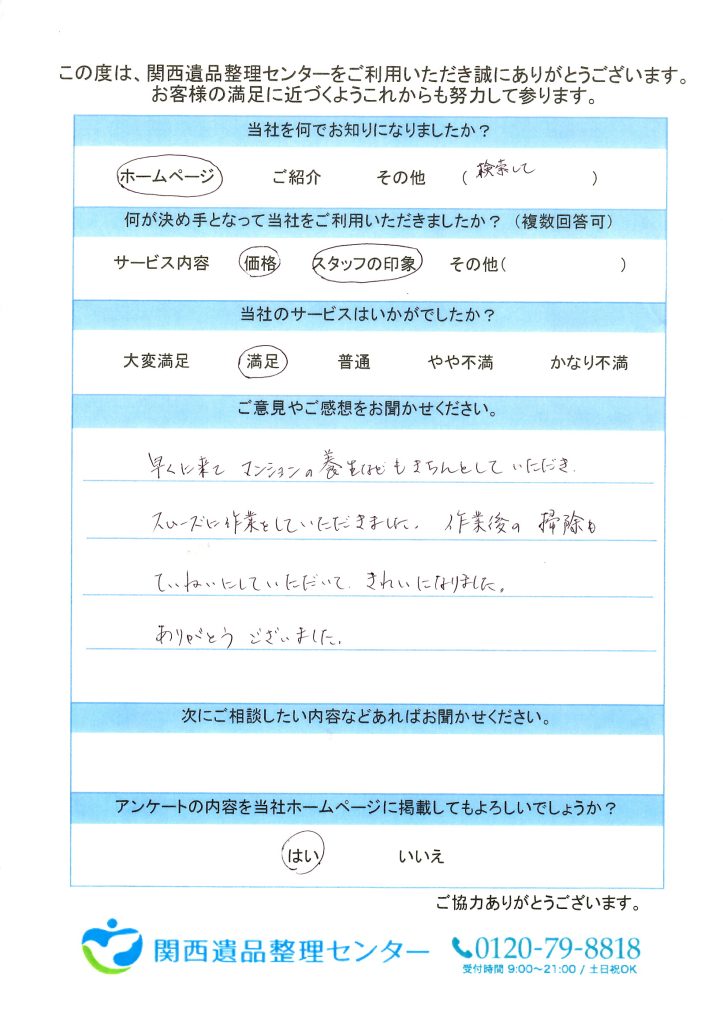 この度は、関西遺品整理センターをご利用いただき誠にありがとうございます。
お客様の満足に近づくようこれからも努力して参ります。
当社を何でお知りになりましたか？
ホームページ ご紹介 その他 （ 検索して ）
何が決め手となって当社をご利用いただきましたか？（複数回答可）
サービス内容 価格 スタッフの印象 その他（ ）
当社のサービスはいかがでしたか？
大変満足 満足 普通 やや不満 かなり不満
ご意見やご感想をお聞かせください。
早くに来て マンションの養生などもきちんとしていただき.
スムーズに作業をしていただきました。作業後の掃除も
ていねいにしていただいて. きれいになりました。
ありがとう ございました.
次にご相談したい内容などあればお聞かせください。
アンケートの内容を当社ホームページに掲載してもよろしいでしょうか？
はい いいえ
ご協力ありがとうございます。
関西遺品整理センター 0120-79-8818
受付時間 9:00～21:00 / 土日祝OK